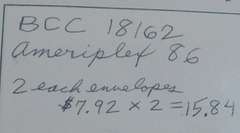 BCC 18162
Ameriplex 86
2 each envelopes
$7.92 x 2 = 15.84